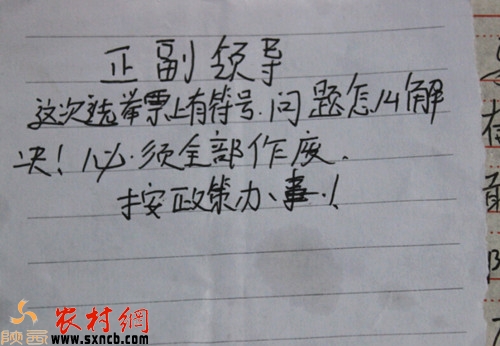 正副领导
这次选举票上有符号.问题怎么解
决！必须全部作废.
按政策办、事.！
陕西农村網
www.sxncb.com